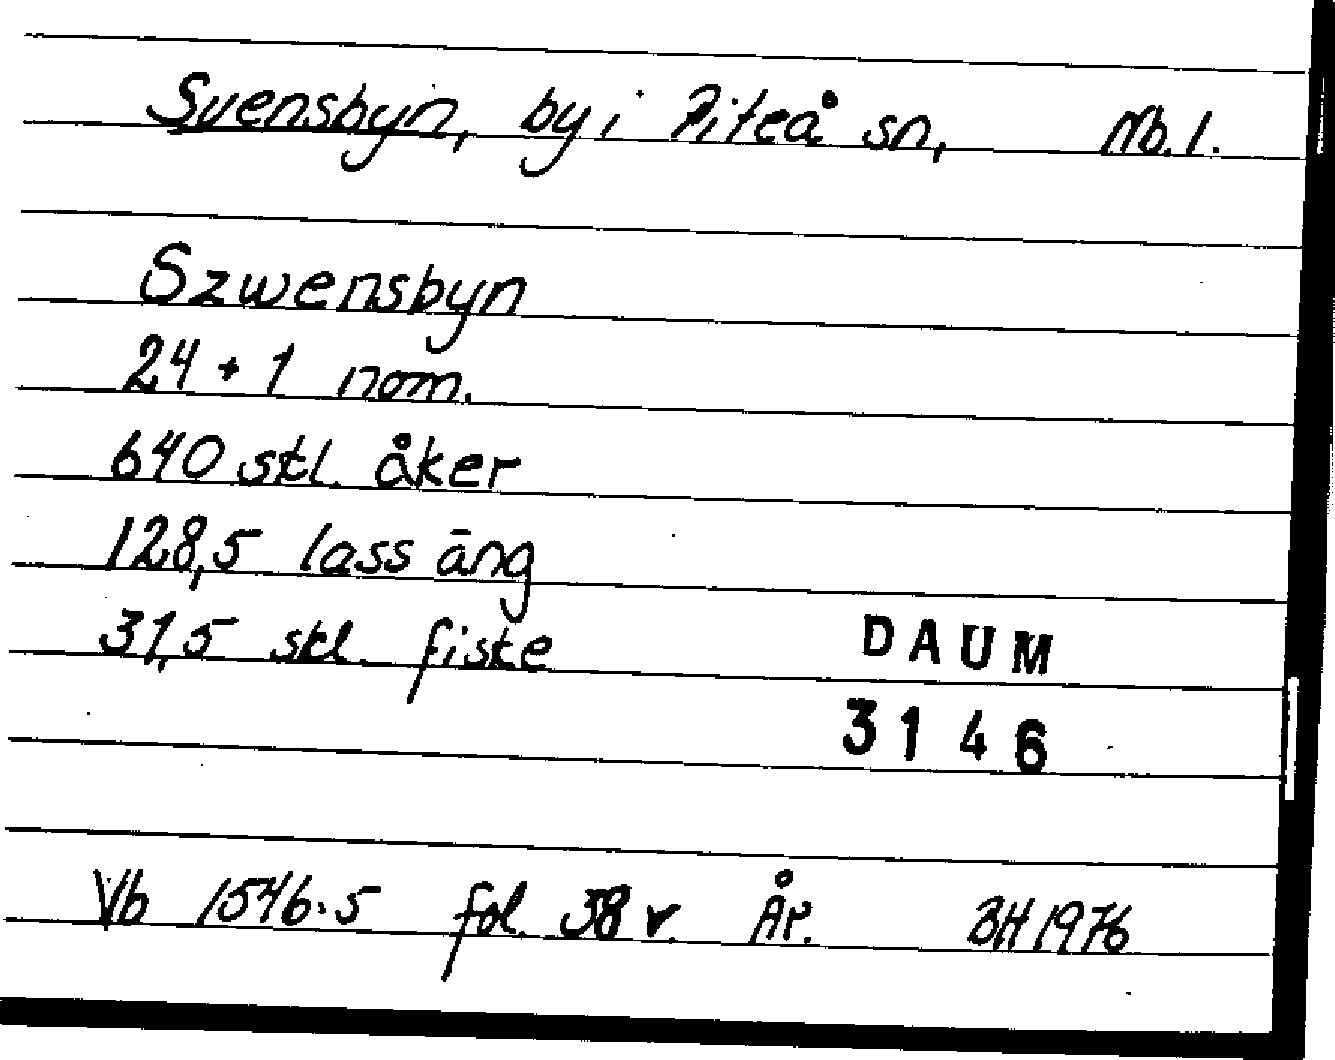 Svensbyn, by i Piteå sn, Nb. l.
Szwensbyn
24 + 1 nom.
640 stl. åker
128,5 lass äng
31,5 stl. fiske
DAUM
3146
Vb 1546:5 fol. 38 v. År. BH 1976